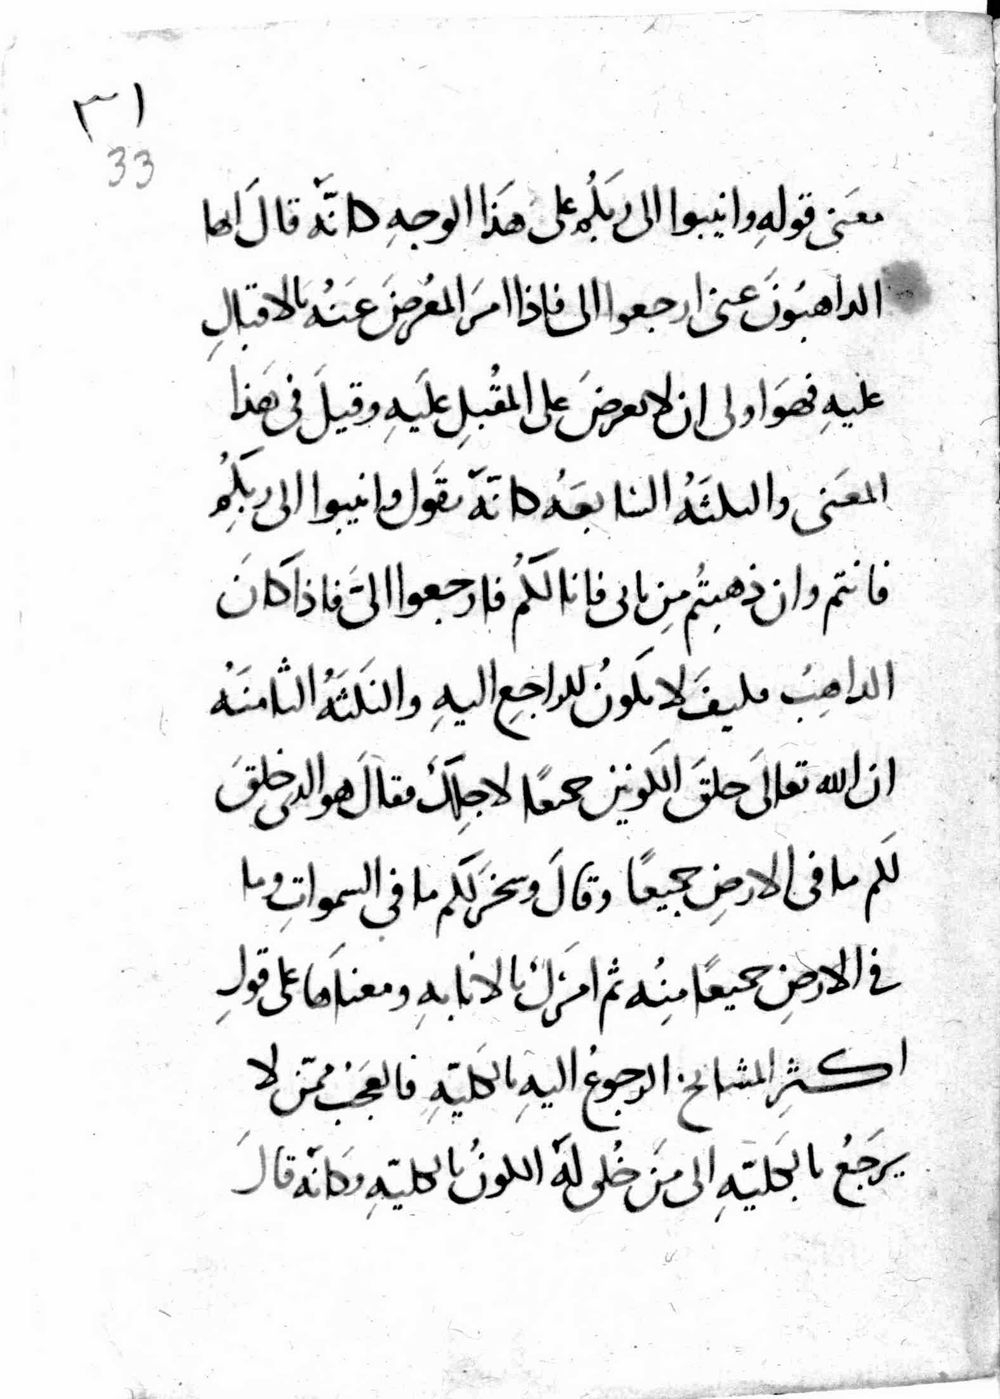 ٣١
33
معنى قولهِ وانيبوا الى ربكُم على هَذا الوجهِ كانَّه قالَ ايها
الداهبُونَ عنى ارجعوا الى فاذا امرَ المعُرضَ عَنهُ بالاقبالِ
عليهِ فهوَ اولى ان لا يعرضَ على المقُبلِ عليَهِ وقيلَ فى هَذا
المعنى والىلىَهُ السابعَهُ كانَّه يقَول وانيبوا الى ربكُم
فانتم وان ذهبتُم مِن بابى فانا لكُم فارجعوا الىَّ فاذا كانَ
الداهِبُ فكيفَ لا يكونُ للراجعِ اليهِ والنكتَهُ الثامنَهُ
ان الله تعالىَ خلقَ الكَونين جميعًا لاجلكَ فقالَ هو الدى خلقَ
لَكم ما فى الارضِ جميعًا وقالَ وسخرَ لكَم ما فى السمواتِ وما
فى الارضِ جميعًا منِه ثم امرَك بالانابهِ ومعناهَا على قولِ
اكثرِ المشايخ الرجوعُ اليهِ بالكليّهِ فالعجَبُ ممّن لا
يرجَعُ بالكليّهِ الى مَن خُلى لهَ الكونُ بالكليّهِ وكانّه قالَ